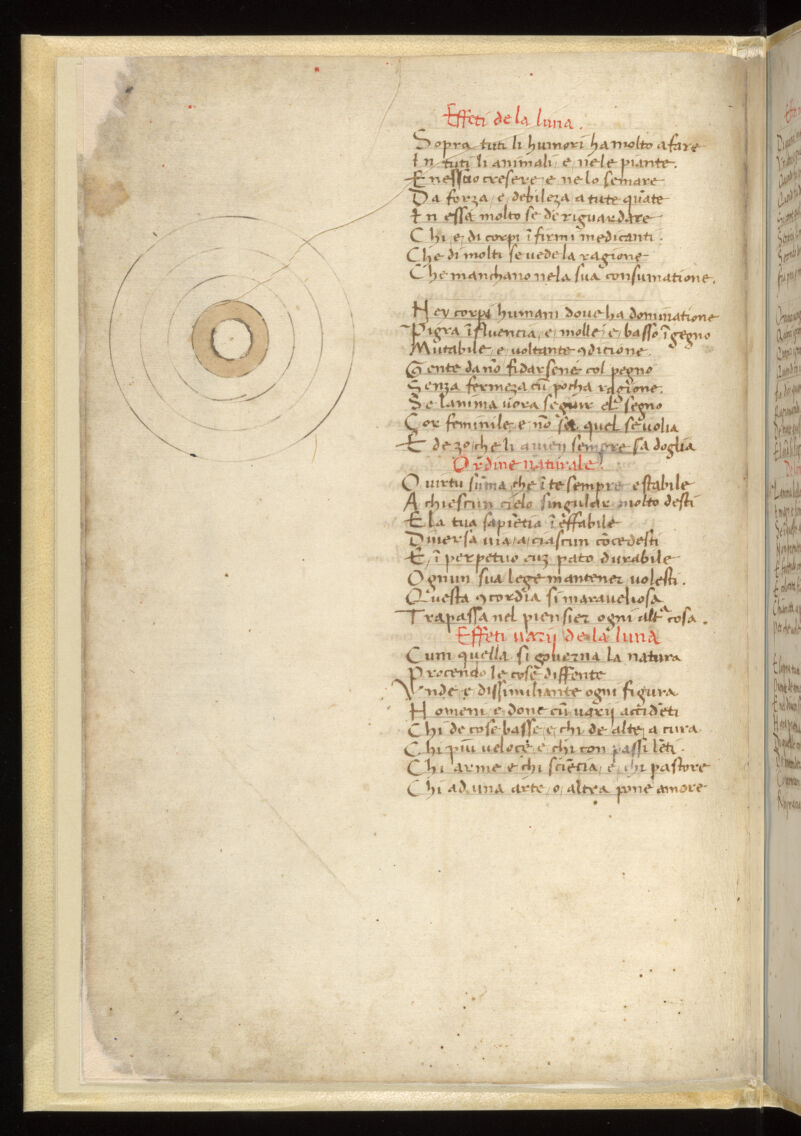 Effeti de la luna.
Sopra tuti li humori ha molto afare
In tuti li animali e nele piante.
E nessũo cresere e nelo semare
Da forza e debileza a tute quãte
In essa molto se de riguardare
Chi e di corpi ĩfirmi medicanti.
Che di molti se uede la ragione
Che manchano nela sua consumatione.
Ney corpi humani doue ha dominatione
Pigra ĩfluencia e molle e basso ĩgegno
Mutabile e uoltante ꝯditione.
Gente da nõ fidarsene col pegno
Senza fermeza cũ pocha ragione.
Se lanima uora seguir el segno
Cor feminile e nõ sa quel se uolia
E de zo che li amen sempre sa doglia
Ordine naturale.
O uirtu sũma che ĩ te sempre e stabile
A chiescun cielo singular molto desti
E la tua sapiẽtia ĩeffabile
Diuersa uia a ciascun cõcedesti
E ĩ perpetuo cuz pato durabile
Ognun sua lege mantener uolesti.
Questa ꝯcordia si marauehosa
Trapassa nel piensier ogni alt͂ cosa.
Effeti uarij de la luna
Cum quella si gouerna la natura
Procendo le cose diffente
Vnde e dissimiliante ogni figura
Homeni e done cũ uarij accidẽti
Chi de cose basse e chi de alte a cura
Chi piũ ueloce e chi con passi lẽti.
Chi arme e chi sciẽcia e chi pastore
Chi ad una arte o altra pone amore